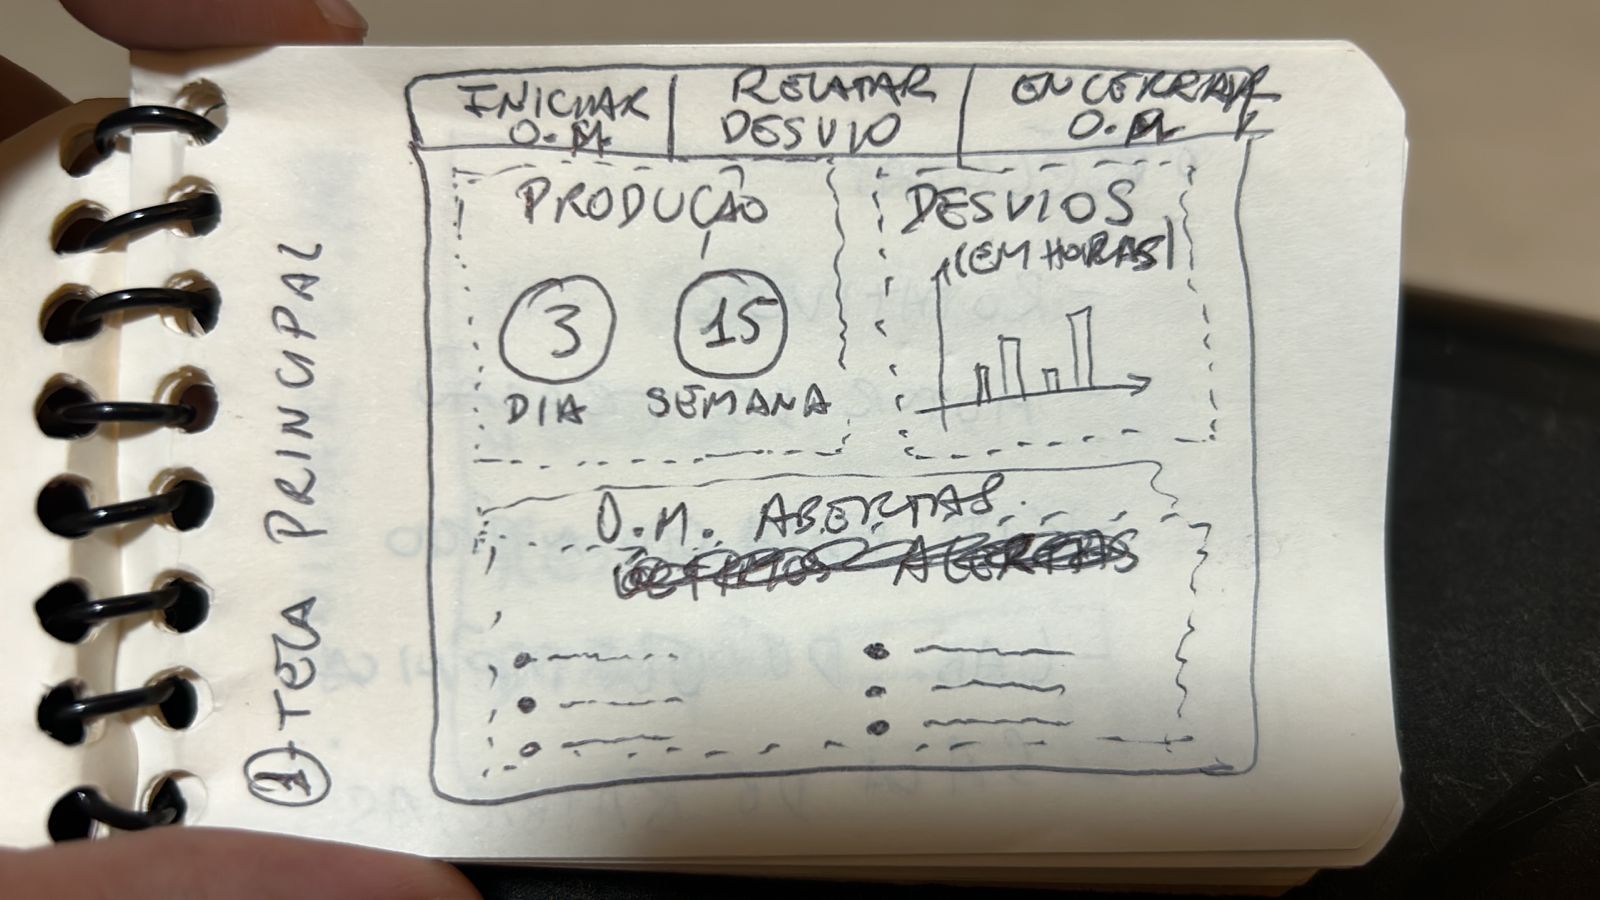 1 TELA PRINCIPAL
INICIAR
O.M
RELATAR
DESVIO
ENCERRAR
O.M.
PRODUÇÃO
3
DIA
15
SEMANA
DESVIOS
(EM HORAS)
O.M. ABERTAS